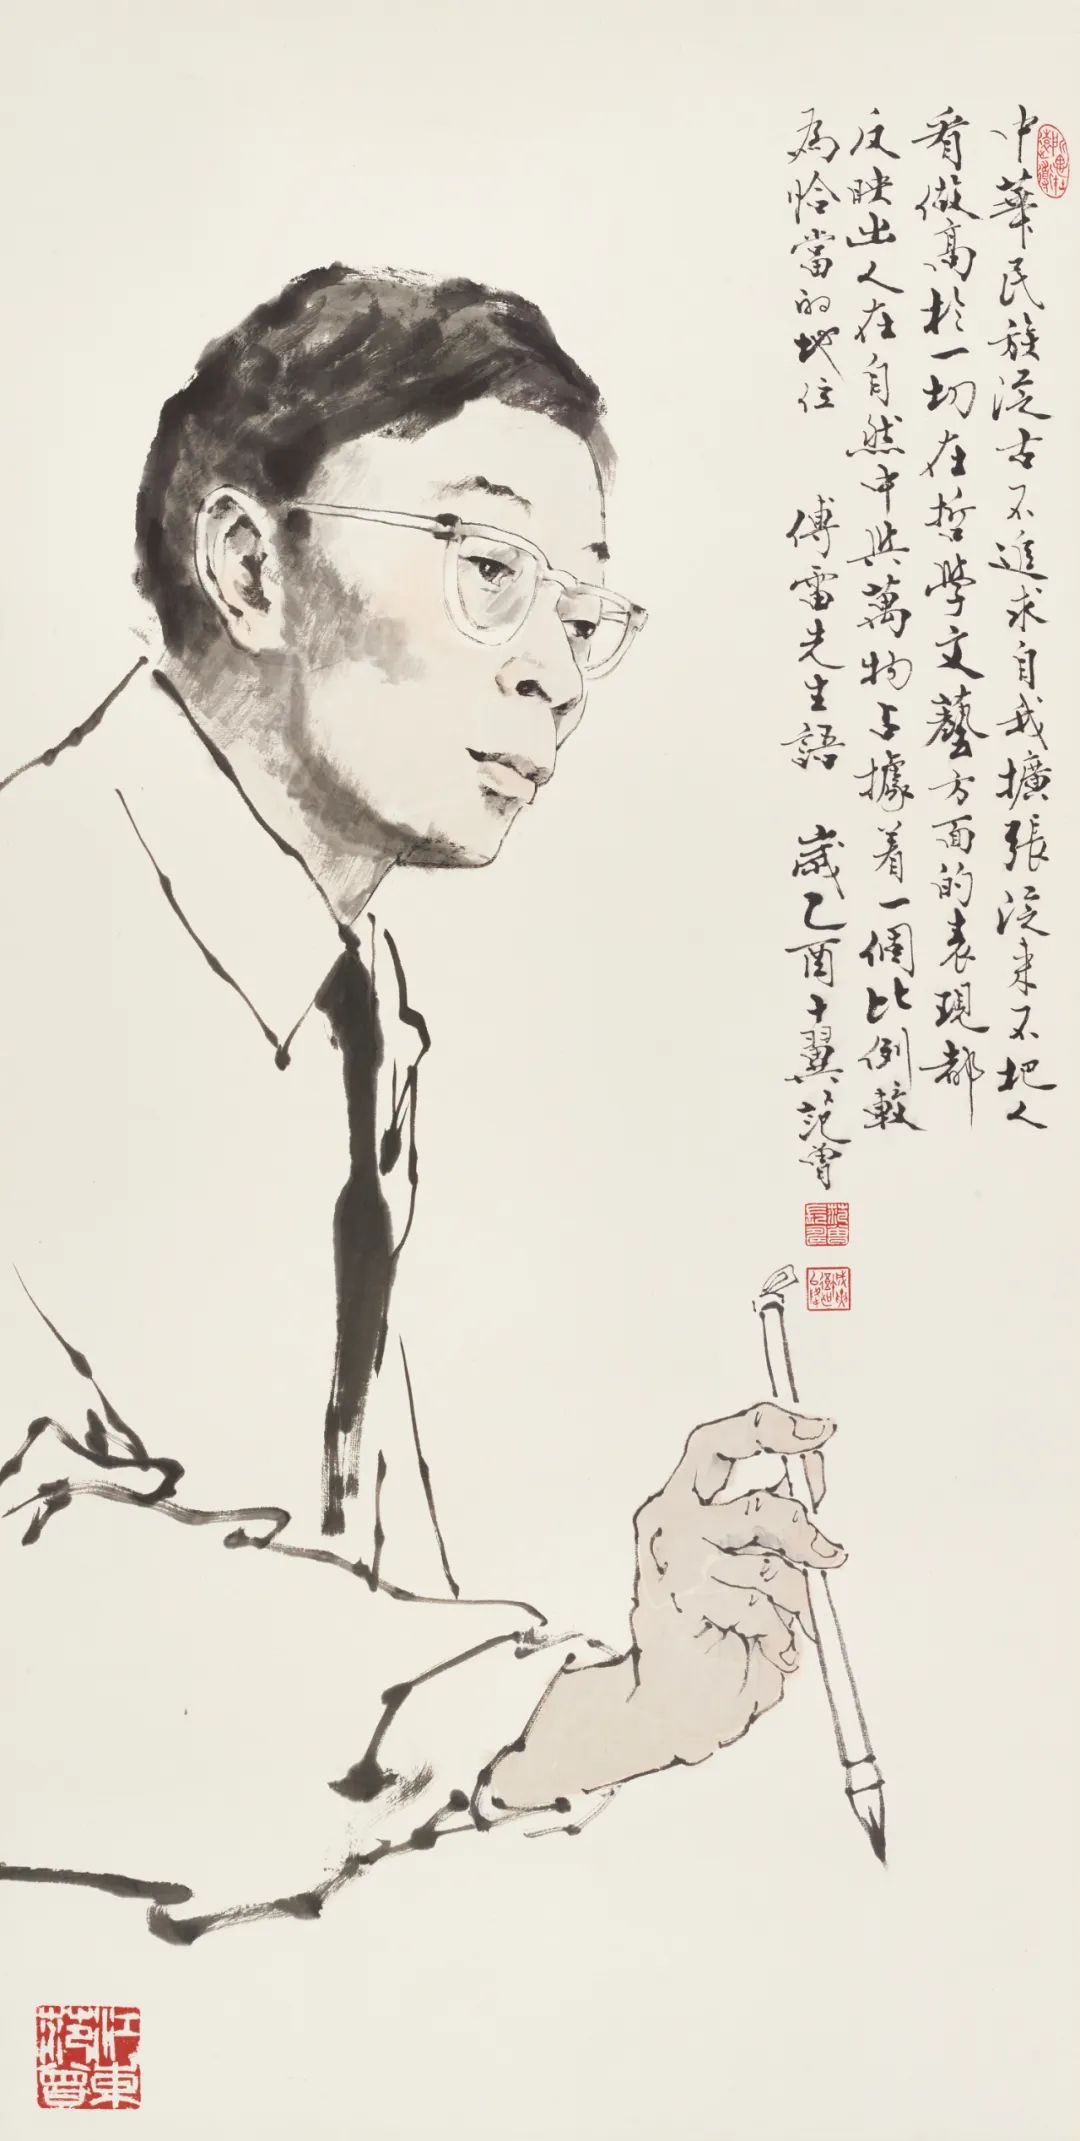 中華民族從古不追求自我擴張從來不把人
看做高於一切在哲學文藝方面的表現都
反映出人在自然中與萬物占據着一個比例較
為恰當的地位 傅雷先生語 歲乙酉十翼范曾
江東范曾